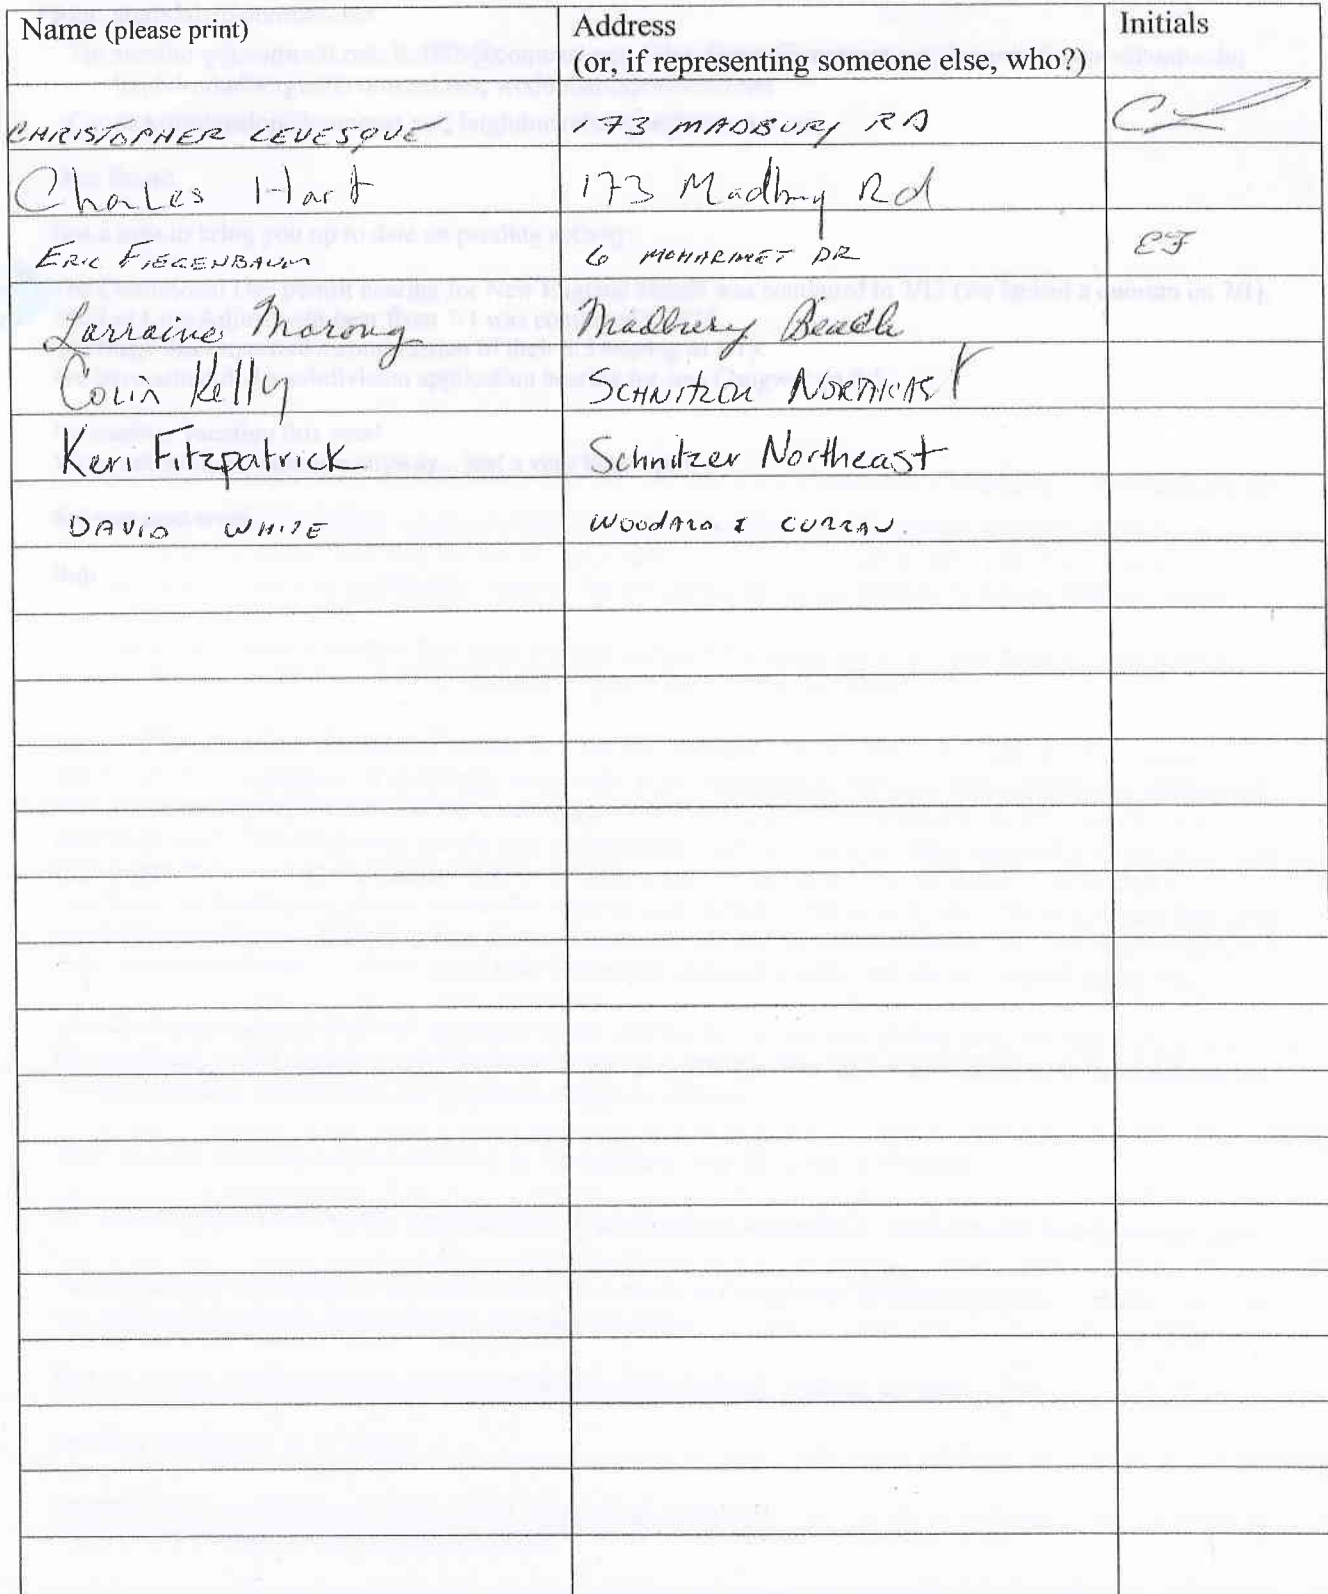 Name (please print) Address Initials
(or, if representing someone else, who?)
CHRISTOPHER LEVESQUE 173 MADBURY RD CL
Charles Hart 173 Madbury Rd
ERIC FIEGENBAUM 6 MOHARIMET DR EF
Lorraine Morong Madbury
Colin Kelly SCHNITZER NORTHEAST
Keri Fitzpatrick Schnitzer Northeast
DAVID WHITE WOODARD & CURRAN